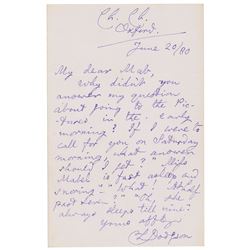 Ch. Ch.
Oxford.
June 20/80
My dear Mab,
Why didn't you
answer my question
about going to the Pic-
tures in the early
morning? If I were to
call for you on Saturday
morning, what answer
should I get? "Miss
Mabel is fast asleep and
snoring" "What! At half
past seven?" "Oh, she
always sleeps till nine."
Yours affly
CLDodgson